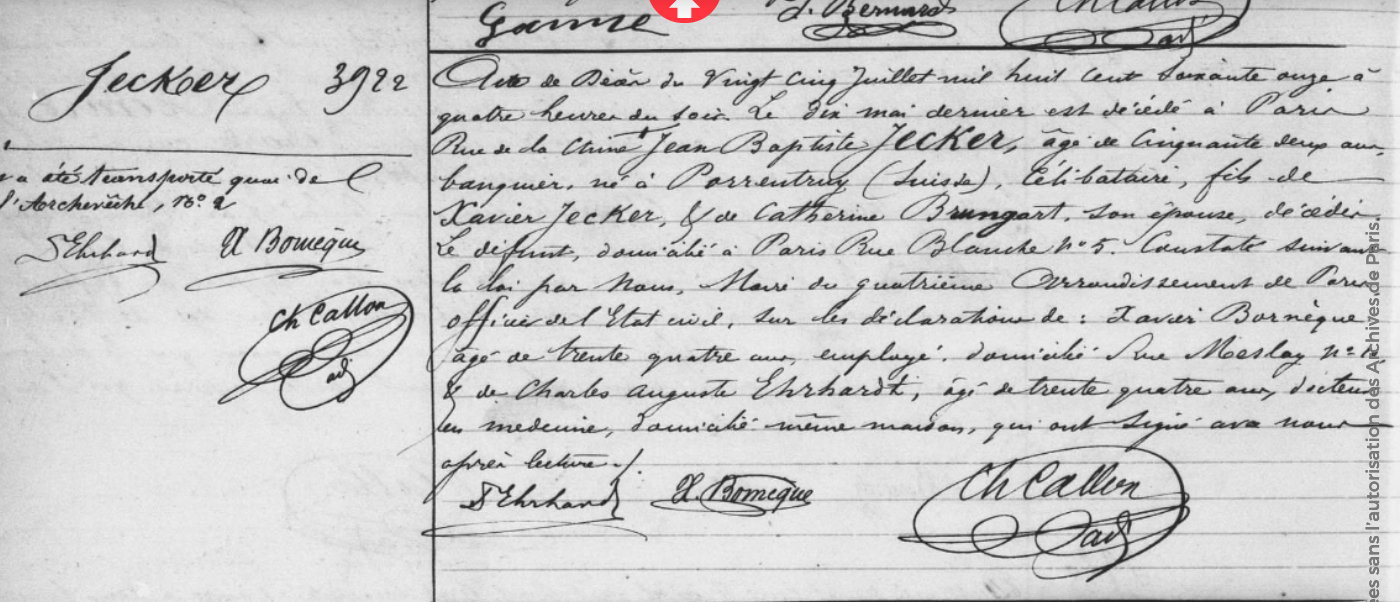 Gamme J. Bernard Ch Callon
adj
Jecker 3922
Acte de Décès du Vingt cinq Juillet mil huit cent soixante onze à
quatre heures du soir. Le dix mai dernier est décédé à Paris
Rue de la Chine Jean Baptiste Jecker, âgé de Cinquante deux ans,
banquier, né à Porrentruy (Suisse), Célibataire, fils de
Xavier Jecker, & de Catherine Brungart, son épouse, décédés.
Le défunt, domicilié à Paris Rue Blanche no 5. Constaté suivant
la loi par Nous, Maire du quatrième Arrondissement de Paris
officier de l'Etat civil, sur les déclarations de : Xavier Bornèque
âgé de trente quatre ans, employé, domicilié Rue Meslay no
& de Charles Auguste Ehrhardt, âgé de trente quatre ans, docteur
en medecine, domicilié même maison, qui ont signé avec nous
après lecture ./.
Ehrhardt X. Bornèque Ch Callon
adj
a été transporté quai de
l'Archevêché, No 2
Ehrhardt X Bornèque
Ch Callon
adj
ées sans l'autorisation des Archives de Paris.